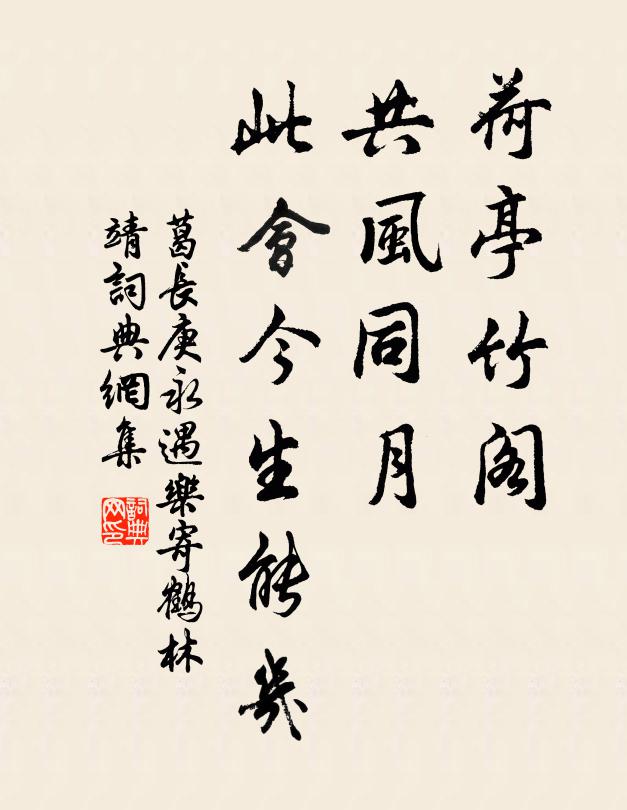 荷亭竹阁
共風同月
此會今生能幾
葛長庚永遇樂寄鶴林
靖詞典網集
詞典网印